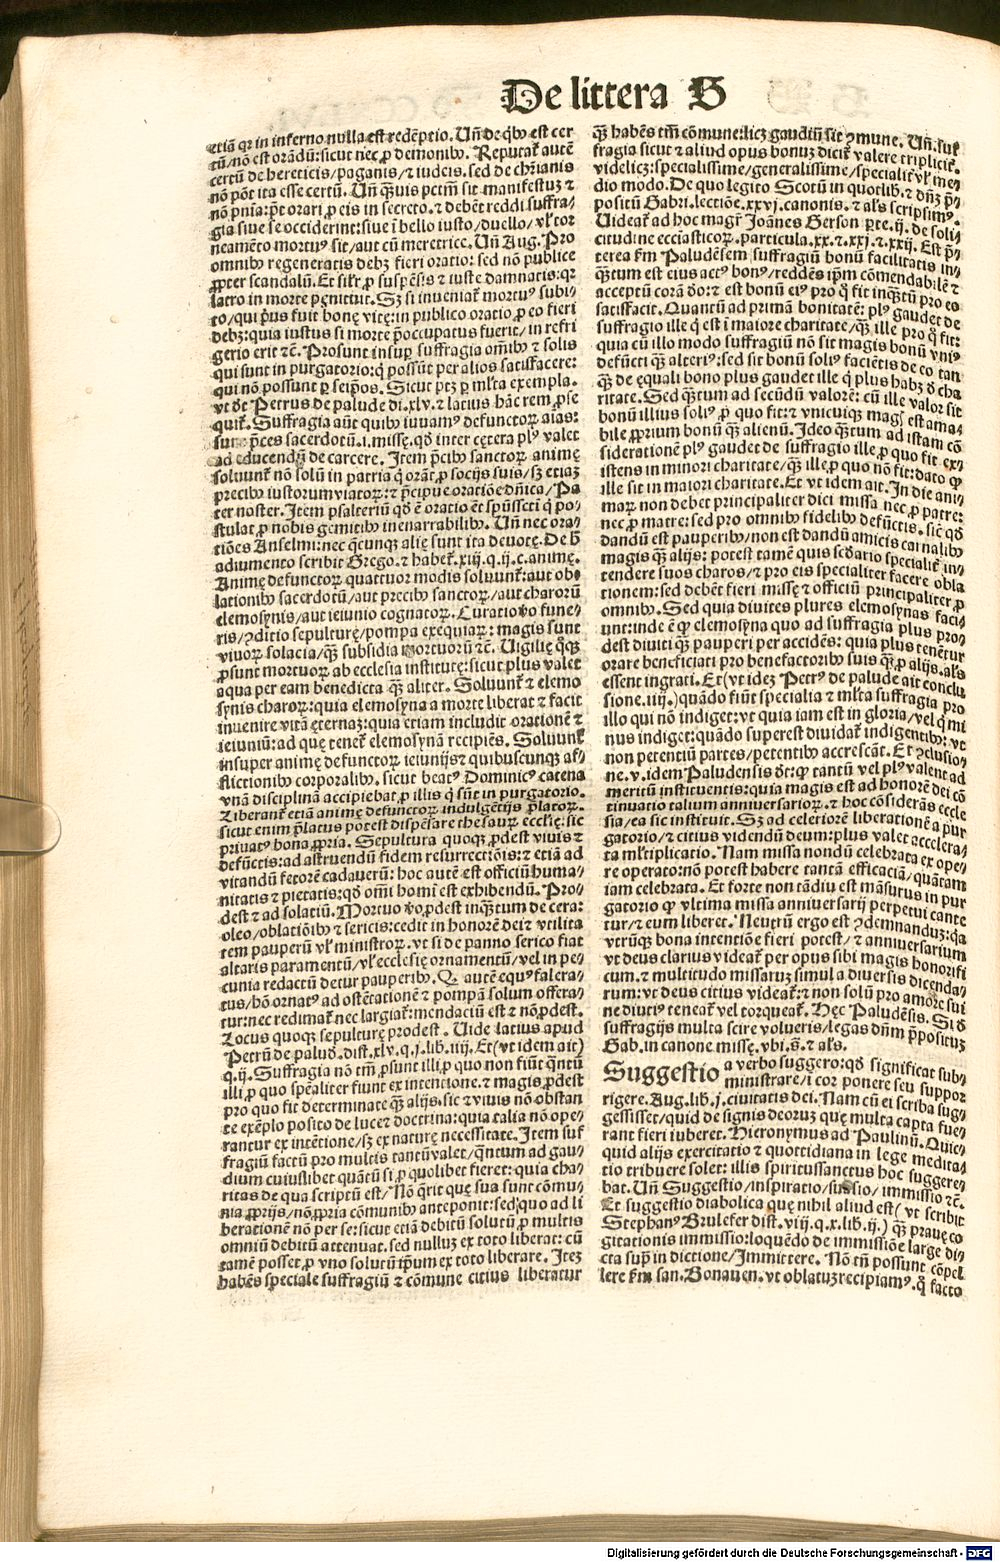 De littera S
etiã qr in inferno nulla est redẽptio. Uñ de qͥbꝫ est cer
tũ/nõ est orãdũ: sicut nec ꝓ demoniꝫ. Reputat᷑ autẽ
certũ de hereticis/paganis/⁊ iudeis. sed de chr̃ianis
nõ põt ita esse certũ. Uñ q̃uis pctm̃ sit manifestuꝫ ⁊
nõ pnĩa: pt̃ orari ꝓ eis in secreto. ⁊ debẽt reddi suffra⸗
gia siue se occiderint: siue ĩ bello iusto/duello/vl̓ tor
neamẽto mortuꝰ sit/aut cũ meretrice. Uñ Aug. Pro
omnibꝫ regeneratis debꝫ fieri oratio: sed nõ publice
ꝓpter scandalũ. Et sil̓r ꝓ suspẽsis ⁊ iuste damnatis: qr
latro in morte pęnituit. Sꝫ si inueniat᷑ mortuꝰ subi⸗
to/qui pͥus fuit bonę vitę: in publico oratio ꝓ eo fieri
debꝫ: quia iustus si morte p̃occupatus fuerit/in refri
gerio erit ⁊c̃. Prosunt insuꝑ suffragia om̃ibꝫ ⁊ solis
qui sunt in purgatorio: q̇ possũt per alios satisfacere:
qui nõ possunt ꝑ seip̃os. Sicut ptꝫ ꝑ ml̓ta exempla.
vt dt̃ Petrus de palude di. xlv. ⁊ latius hãc rem ꝓse
quit᷑. Suffragia aũt quibꝫ iuuam᷑ defunctoꝝ aĩas:
p̃ces sacerdotũ. i. missę. qd̓ inter cętera plꝰ valet
ad educendũ de carcere. Item p̃cibꝫ sanctoꝝ animę
soluunt᷑ nõ solũ in patria q̇ orãt ꝓ socijs suis/sꝫ etiaꝫ
precibꝫ iustorum viatoꝝ: ⁊ p̃cipue oratiõe dñica/Pa
ter noster. Item psalteriũ qd̓ ẽ oratio ẽt spũssc̃ti q̇ po⸗
stulat ꝓ nobis gemitibꝫ inenarrabilibꝫ. Uñ nec ora⸗
tiões Anselmi: nec q̃cunqꝫ alię sunt ita deuotę. De h̓
adiumento scribit Grego. ⁊ habet᷑. xiij. q. ij. c. animę.
Animę defunctoꝝ quattuor modis soluunt᷑: aut ob⸗
lationibꝫ sacerdotũ/aut precibꝫ sanctoꝝ/aut charorũ
elemosynis/aut ieiunio cognatoꝝ. Curatio v̓o fune⸗
ris/ↄditio sepulturę/pompa exequiaꝝ: magis sunt
viuoꝝ solacia/q̃ꝫ subsidia mortuorũ ⁊c̃. Uigilię q̊qꝫ
ꝓsunt mortuoꝝ ab ecclesia institutę: sicut plus valet
aqua per eam benedicta q̃ꝫ aliter. Soluunt᷑ ⁊ elemo
synis charoꝝ: quia elemosyna a morte liberat ⁊ facit
inuenire vitã ęternaꝫ: quia etiam includit orationẽ ⁊
ieiuniũ: ad quę tenet᷑ elemosynã recipiẽs. Soluunt᷑
insuper animę defunctoꝝ ieiunijs ⁊ quibuscunqꝫ af⸗
flictionibꝫ corporalibꝫ. sicut beatꝰ Dominicꝰ catena
vnã disciplinã accipiebat ꝓ illis q̇ sũt in purgatorio.
Liberant᷑ etiã animę defunctoꝝ indulgẽtijs p̃latoꝝ.
sicut enim p̃latus potest dispẽsare thesaurꝰ ecclię: sic
priuatꝰ bona ꝓpria. Sepultura quoqꝫ ꝓdest viuis ⁊
defũctis: ad astruendũ fidem resurrectiõis: ⁊ etiã ad
vitandũ fetorẽ cadauerũ: hoc autẽ est officiũ huma⸗
nitatis ⁊ pietatis: qd̓ om̃i homĩ est exhibendũ. Pro⸗
dest ⁊ ad solatiũ. Mortuo v̓o ꝓdest inq̃ꝫtum de cera:
oleo/oblatiõibꝫ ⁊ sericis: cedit in honorẽ dei ⁊ vtilita
tem pauperũ vl̓ ministroꝝ. vt si de panno serico fiat
altaris paramentũ/vl̓ ecclesię ornamentũ/vel in pe⸗
cunia redactũ detur pauperibꝫ. Q autẽ equꝰ falera⸗
tus/hõ ornatꝰ ad ostẽtationẽ ⁊ pompã solum offera⸗
tur: nec redimat᷑ nec largiat᷑: mendaciũ est ⁊ nõ ꝓdest.
Locus quoqꝫ sepulturę prodest. Uide latius apud
Petrũ de palud. dist. xlv. q. j. lib. iiij. Et (vt idem ait)
q. ij. Suffragia nõ tm̃ ꝓsunt illi ꝓ quo non fiũt q̃ntũ
illi ꝓ quo spẽaliter fiunt ex intentione. ⁊ magis ꝓdest
pro quo fit determinate q̃ꝫ alijs. sic ⁊ viuis nõ obstan
te exẽplo posito de luce ⁊ doctrina: quia talia nõ ope⸗
rantur ex intẽtione/sꝫ ex naturę necessitate. Item suf
fragiũ factũ pro multis tantũ valet/q̃ntum ad gau⸗
dium cuiuslibet quantũ si ꝓ quolibet fieret: quia cha⸗
ritas de qua scriptũ est/Nõ q̃rit quę sua sunt cõmu⸗
nia ꝓprijs/nõ ꝓpria cõmunibꝫ anteponit: sed quo ad li
berationẽ non per se: sicut etiã debitũ solutũ ꝓ multis
omniũ debitũ attenuat. sed nulluꝫ ex toto liberat: cũ
tamẽ posset ꝓ vno solutũ ip̃um ex toto liberare. Iteꝫ
habẽs speciale suffragiũ ⁊ cõmune citius liberatur
q̃ꝫ habẽs tm̃ cõmune: licꝫ gaudiũ sit ↄmune. Uñ. suf
fragia sicut ⁊ aliud opus bonuꝫ dicit᷑ valere triplicit᷑.
videlicꝫ: specialissime/generalissime/specialit᷑ vl̓ me⸗
dio modo. De quo legito Scotũ in quotlib. ⁊ dñꝫ p̃⸗
positũ Gabri. lectiõe. xxvj. canonis. ⁊ al̓s scripsimꝰ.
Uideat᷑ ad hoc magr̃ Joãnes Gerson ꝑte. ij. de soli⸗
citudine ecclasticoꝝ. particula. xx. ⁊. xxj. ⁊. xxij. Est p̃⸗
terea fm̃ Paludẽsem suffragiũ bonũ facilitatis in⸗
q̃ꝫtum est eius actꝰ bonꝰ/reddẽs ip̃m cõmendabilẽ ⁊
acceptũ corã d̓o: ⁊ est bonũ eiꝰ pro q̊ fit inq̃ꝫtũ pro eo
satisfacit. Quantũ ad primã bonitatẽ: plꝰ gaudet de
suffragio ille q̇ est ĩ maiore charitate/q̃ꝫ ille pro q̊ fit:
quia cũ illo modo suffragiũ nõ sit magis bonũ vniꝰ
defũcti q̃ꝫ alteriꝰ: sed sit bonũ soliꝰ faciẽtis de eo tan
q̃ꝫ de ęquali bono plus gaudet ille q̇ plus habꝫ d̓ cha
ritate. Sed q̃ꝫtum ad secũdũ valorẽ: cũ ille valor sit
bonũ illius soliꝰ ꝓ quo fit: ⁊ vnicuiqꝫ magꝭ est ama⸗
bile ꝓprium bonũ q̃ꝫ alienũ. Ideo q̃ꝫtum ad istam cõ
siderationẽ plꝰ gaudet de suffragio ille ꝓ quo fit ex⸗
istens in minori charitate/q̃ꝫ ille ꝓ quo nõ fit: dato ꝙ
ille sit in maiori charitate. Et vt idem ait. In die ani⸗
maꝝ non debet principaliter dici missa nec ꝓ patre:
nec ꝓ matre: sed pro omnibꝫ fidelibꝫ defũctis. sic qd̓
dandũ est pauperibꝫ/non est dandũ amicis carnalibꝫ
magis q̃ꝫ alijs: potest tamẽ quis scd̓ario specialit᷑ in⸗
tendere suos charos/⁊ pro eis specialiter facere obla
tionem: sed debẽt fieri missę ⁊ officiũ principaliter ꝓ
omnibꝫ. Sed quia diuites plures elemosynas faci⸗
unt: inde ẽ ꝙ elemosyna quo ad suffragia plus pro⸗
dest diuiti q̃ꝫ pauperi per accidẽs: quia plus tenẽtur
orare beneficiati pro benefactoribꝫ suis q̃ꝫ ꝓ alijs. al̓s
essent ingrati. Et (vt ideꝫ Petrꝰ de palude ait conclu
sione. iij.) quãdo fiũt specialia ⁊ ml̓ta suffragia pro
illo qui nõ indiget: vt quia iam est in gloria/vel q̇ mi
nus indiget: quãdo superest diuidat᷑ indigentibꝫ: vt
non petentiũ partes/petentibꝫ accrescãt. Et ↄclusio⸗
ne. v. idem Paludensis dt̃: ꝙ tantũ vel plꝰ valent ad
meritũ instituentis: quia magis est ad honorẽ dei cõ
tinuatio talium anniuersarioꝝ. ⁊ hoc cõsiderãs eccle
sia/ea sic instituit. Sꝫ ad celeriorẽ liberationẽ a pur
gatorio/⁊ citius videndũ deum: plus valet accelera⸗
ta ml̓tiplicatio. Nam missa nondũ celebrata ex ope⸗
re operato: nõ potest habere tantã efficaciã/quãtam
iam celebrata. Et forte non tãdiu est mãsurus in pur
gatorio ꝙ vltima missa anniuersarij perpetui cante
tur/⁊ eum liberet. Neutrũ ergo est ↄdemnanduꝫ: q̃a
vtrũqꝫ bona intentiõe fieri potest/⁊ anniuersarium
vt deus clarius videat᷑ per opus sibi magis honorifi
cum. ⁊ multitudo missaruꝫ simul a diuersis dicenda⸗
rum: vt deus citius videat᷑: ⁊ non solũ pro amore sui
ne diutiꝰ teneat᷑ vel torqueat᷑. Hęc Paludẽsis. Si d̓
suffragijs multa scire volueris/legas dñm p̃positũ
Gab. in canone missę. vbi. s̃. ⁊ al̓s.
Suggestio a verbo suggero: qd̓ significat sub⸗
ministrare/i cor ponere seu suppor
rigere. Aug. lib. j. ciuitatis dei. Nam cũ ei scriba sug⸗
gessisset/quid de signis deoruꝫ quę multa capta fue⸗
rant fieri iuberet. Hieronymus ad Paulinũ. Quic⸗
quid alijs exercitatio ⁊ quottidiana in lege medita⸗
tio tribuere solet: illis spiritussanctus hoc suggere⸗
bat. Uñ Suggestio/inspiratio/suasio/immissio ⁊c̃.
Et suggestio diabolica quę nihil aliud est (vt scribit
Stephanꝰ Brulefer dist. viij. q. x. lib. ij.) q̃ꝫ prauę co
gitationis immissio: loquẽdo de immissiõe large di⸗
cta supͣ in dictione/Immittere. Nõ tñ possunt cõpel
lere fm̃ san. Bonauen. vt oblatuꝫ recipiamꝰ. q̊ facto
Digitalisierung gefördert durch die Deutsche Forschungsgemeinschaft - DFG